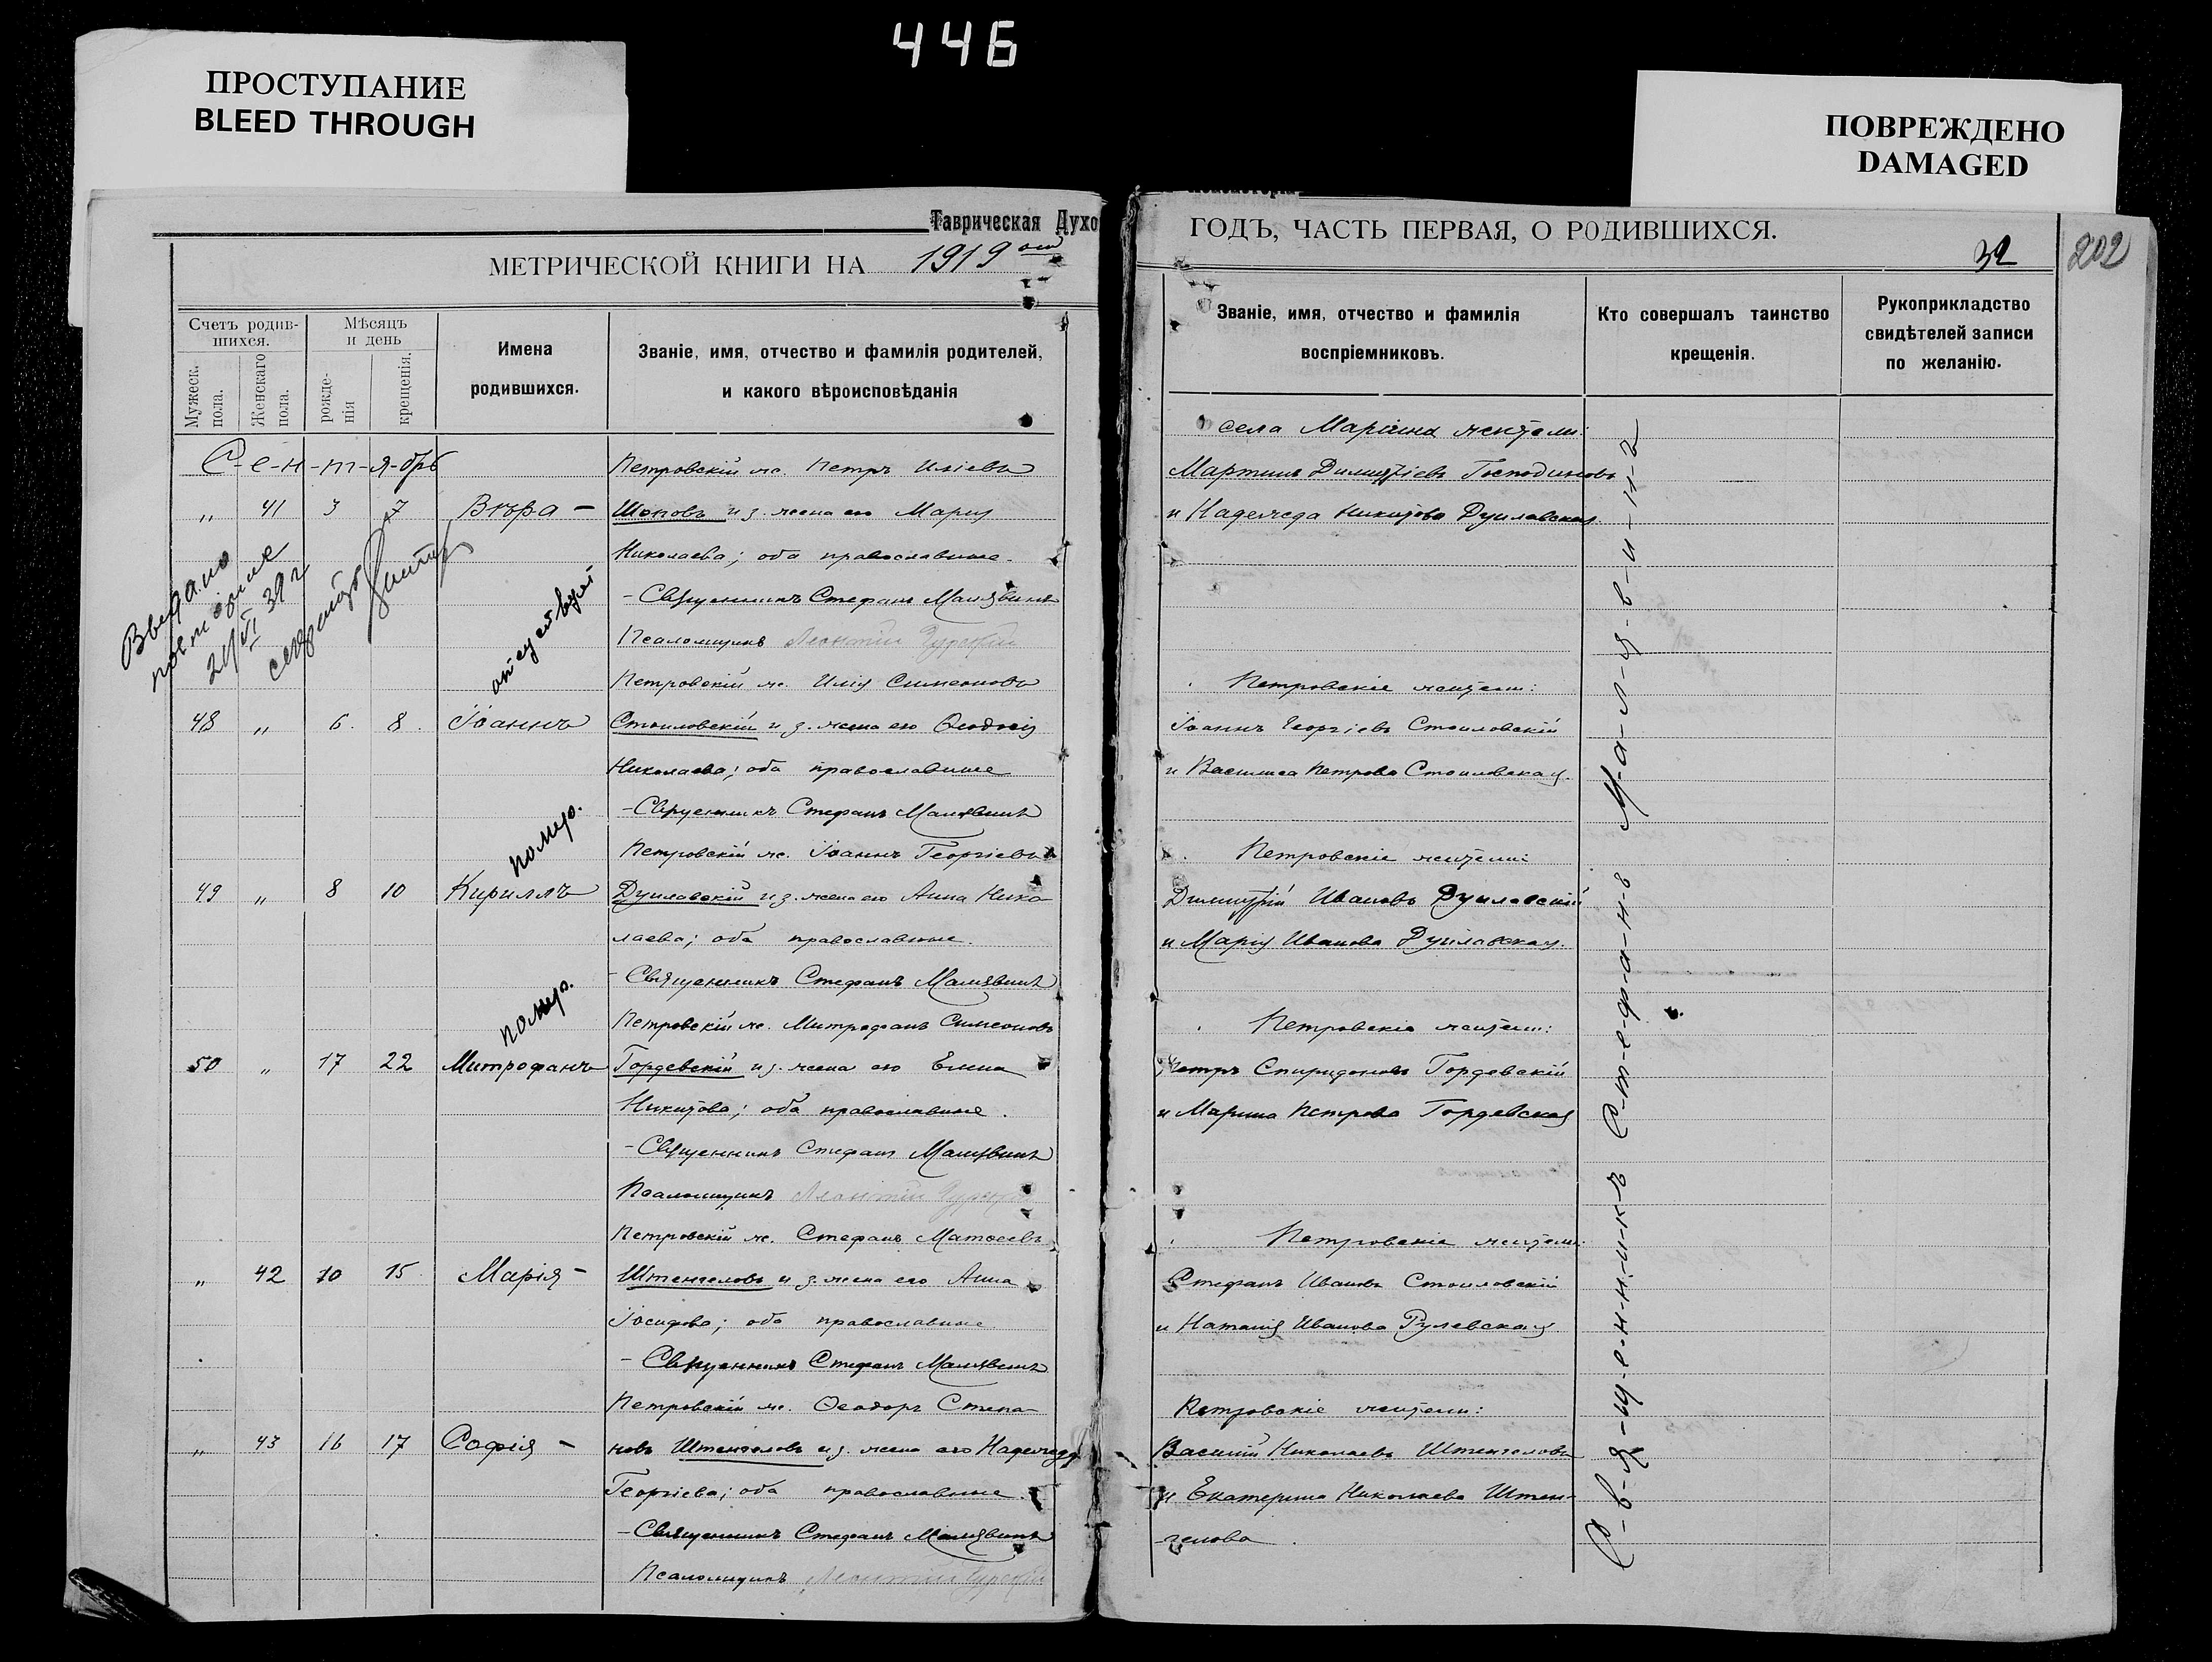 446
ПРОСТУПАНИЕ
BLEED THROUGH
ПОВРЕЖДЕНО
DAMAGED
Таврическая Духо
МЕТРИЧЕСКОЙ КНИГИ НА 1919 ый
Счетъ родив-
шихся.
Мужеск. пола.
Женскаго пола.
Мѣсяцъ
и день
рожде-
нія
крещенія.
Имена
родившихся.
Званіе, имя, отчество и фамилія родителей,
и какого вѣроисповѣданія
С-е-н-т-я-брь
Петровскій ж. Петръ Иліевъ
" 41 3 7 Вѣра – Шоповъ и з. жена его Марія
Николаева; оба православные.
– Священникъ Стефанъ Малявинъ
Псаломщикъ Леонтій
Выдано
21/VI 39 г
Петровскій ж. Илія Симеоновъ
48 " 6. 8. Іоаннъ Стоиловскій и з. жена его Ѳеодосія
Николаева; оба православные
– Священникъ Стефанъ Малявинъ
помер.
Петровскій ж. Іоаннъ Георгіевъ
49 " 8 10 Кириллъ Дуилавскій и з. жена его Анна Нико-
лаева; оба православные.
– Священникъ Стефанъ Малявинъ
помер.
Петровскій ж. Митрофанъ Симеоновъ
50 " 17 22 Митрофанъ Гордевскій и з. жена его Елена
Никитова; оба православные.
– Священникъ Стефанъ Малявинъ
Псаломщикъ Леонтій
Петровскій ж. Стефанъ Матѳеевъ
" 42 10 15 Марія – Штенгеловъ и з. жена его Анна
Іосифова; оба православные.
– Священникъ Стефанъ Малявинъ
Петровскій ж. Ѳеодоръ Степа-
" 43 16 17 Софія – новъ Штенгеловъ и з. жена его Надежда
Георгіева; оба православные.
– Священникъ Стефанъ Малявинъ
Псаломщикъ Леонтій
ГОДЪ, ЧАСТЬ ПЕРВАЯ, О РОДИВШИХСЯ.
32
202
Званіе, имя, отчество и фамилія
воспріемниковъ.
Кто совершалъ таинство
крещенія.
Рукоприкладство
свидѣтелей записи
по желанію.
села Маріина жители:
Мартинъ Димитріевъ Господиновъ
и Надежда Никитова Дуилавская.
Петровскіе жители:
Іоаннъ Георгіевъ Стоиловскій
и Василиса Петрова Стоиловская.
Петровскіе жители:
Димитрій Ивановъ Дуилавскій
и Марія Иванова Дуилавская.
Петровскіе жители:
Петръ Спиридоновъ Гордевскій
и Марина Петрова Гордевская
Петровскіе жители:
Стефанъ Ивановъ Стоиловскій
и Наталія Иванова Рулевская
Петровскіе жители:
Василій Николаевъ Штенгеловъ
и Екатерина Николаева Штен-
гелова.
С-в-я-щ-е-н-н-и-к-ъ С-т-е-ф-а-н-ъ М-а-л-я-в-и-н-ъ